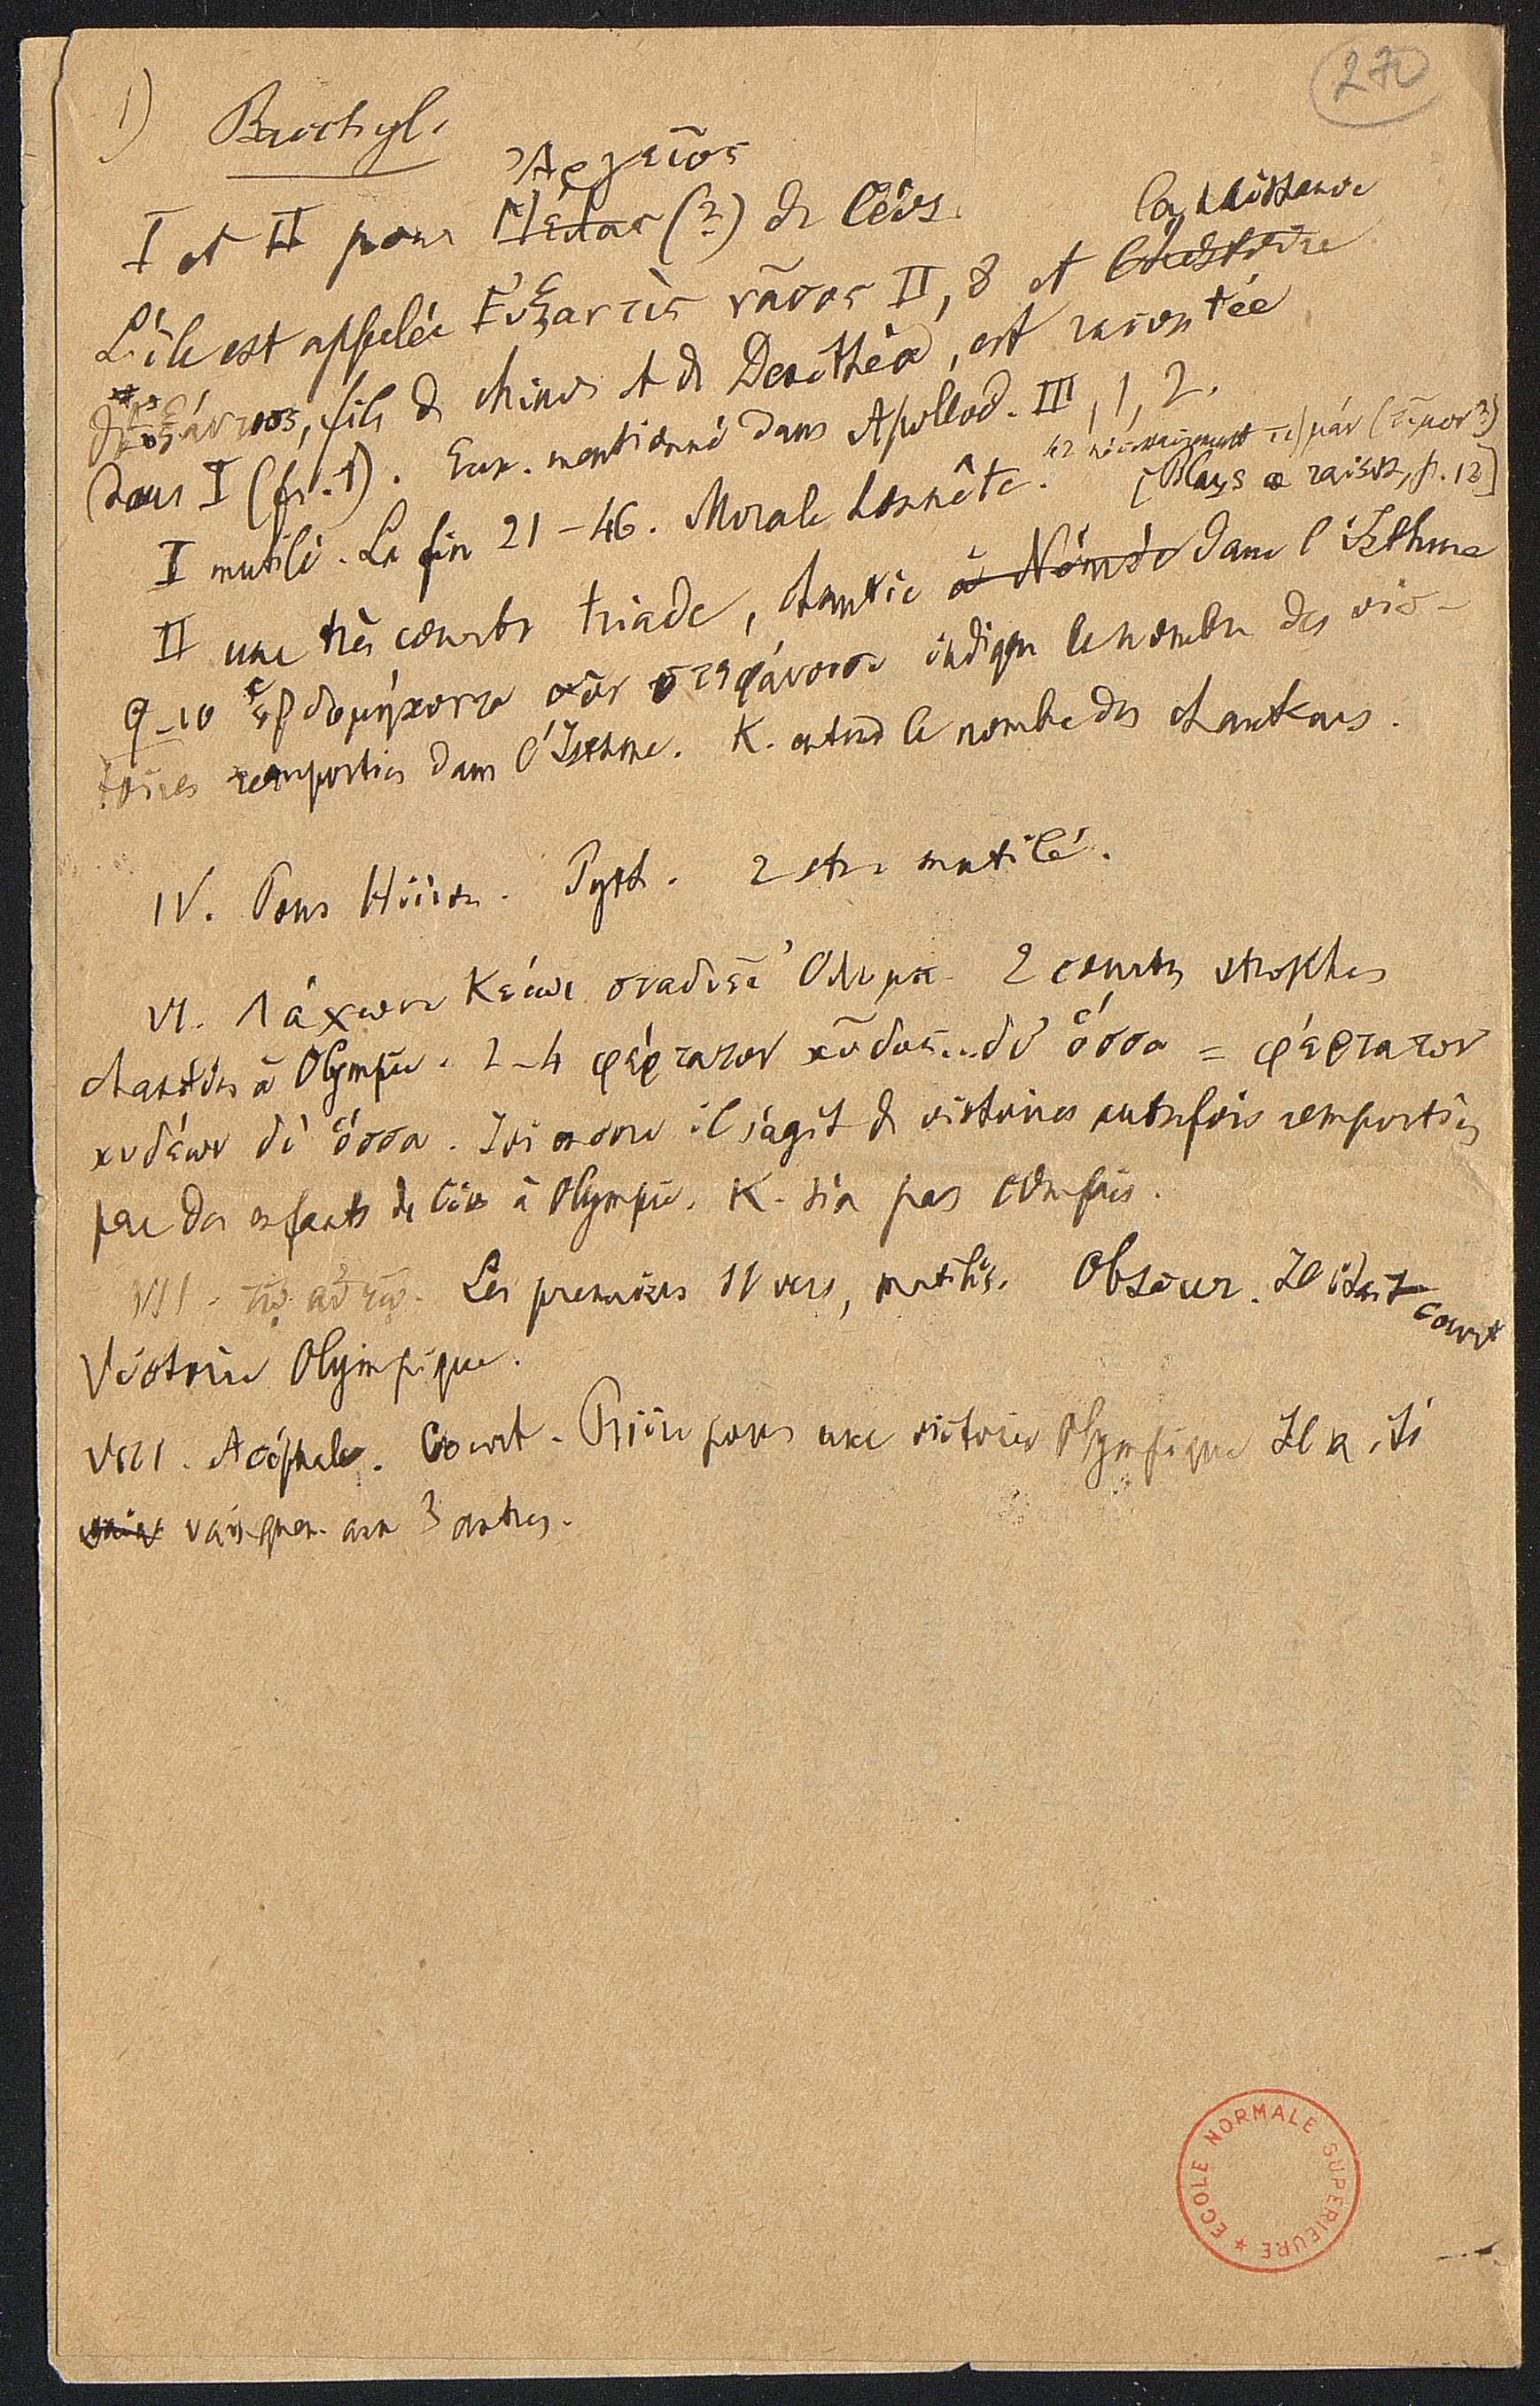 270
1) Bacchyl.
Ἀργεῖος
I et II pour Μέλας (?) de Céos.
la naissance
L'île est appelée Εὐξαντὶς νᾶσος II, 8 et l'histoire
d'Εὐξάντιος, fils de Minos et de Dexithéa, est racontée
dans I (fr. 1). Eux. mentionné dans Apollod. III, 1, 2.
42 nécessairement τιμάν (τῖμον?)
I mutilé. La fin 21-46. Morale honnête. [Blass a raison, p. 12]
II une très courte triade, chantée à Némée dans l'Isthme
9-10 ἑβδομήκοντα σὺν στεφάνοισι indique le nombre des vic-
toires remportées dans l'Isthme. K. entend le nombre des chanteurs.
IV. Pour Hiéron. Pyth. 2 str. mutilé.
VI. Λάχωνι Κείωι σταδιεῖ Ὀλυμπ. 2 courtes strophes
chantées à Olympie. 2-4 φέρτατον κῦδος... δι' ὅσσα = φέρτατον
κυδέων δι' ὅσσα. Ici encore il s'agit de victoires autrefois remportées
par des enfants de Céos à Olympie. K. n'a pas compris.
VII. τῷ αὐτῷ. Les premiers 11 vers, mutilés. Obscur. Il était court
Victoire Olympique.
VIII. Acéphale. Court. Prière pour une victoire Olympique Il a été
vainqueur aux 3 autres.
ECOLE NORMALE SUPERIEURE